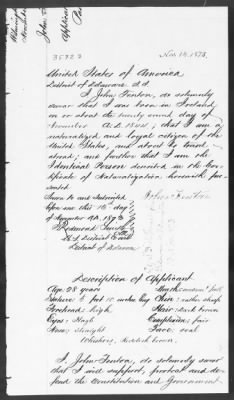 35723
Nov. 14, 1873.
United States of America
District of Delaware S.S.
I John Fenton, do solemnly
swear that I was born in Ireland
on or about the twenty second day of
November A.D. 1844; that I am a
naturalized and loyal citizen of the
United States, and about to travel
abroad; and further that I am the
identical Person described in the Cer-
tificate of Naturalization herewith pre-
sented.
John Fenton
Sworn to and Subscribed
before me this 14th day
of November A.D. 1873
District of Delaware
Description of Applicant
Age: 28 years
Mouth:
Stature: 5 feet 10 inches Eng
Chin: rather sharp
Forehead: high
Hair: dark brown
Eyes:
Complexion: fair
Nose: straight
Face: oval
Whiskers, reddish brown,
I, John Fenton, do solemnly swear
that I will support, protect and de-
fend the Constitution and Government